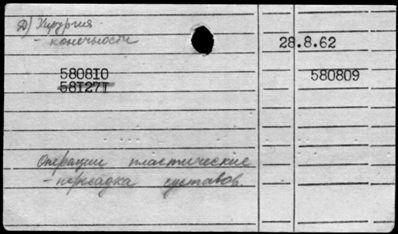 Д) Хирургия
- конечности
28.8.62
580810
580809
581271
Операции пластические
- пересадка суставов.